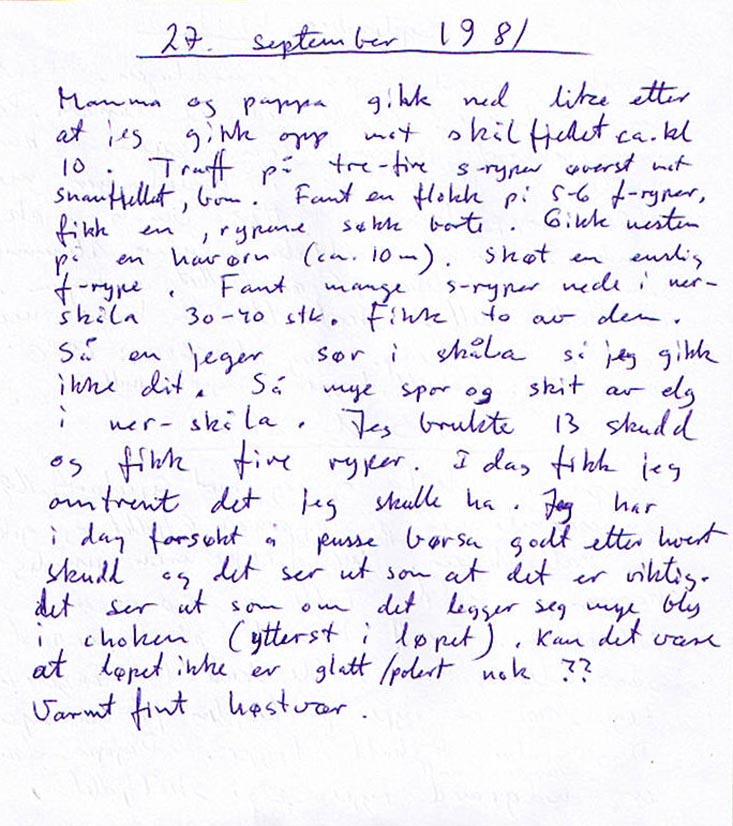 27. september 1981
Mamma og pappa gikk ned like etter
at jeg gikk opp mot skålfjellet ca. kl
10. Traff på tre-fire s-ryper øverst mot
snaufjellet, bom. Fant en flokk på 5-6 f-ryper,
fikk en, rypene søkk borte. Gikk nesten
på en havørn (ca. 10 m). Skøt en enslig
f-rype. Fant mange s-ryper nede i ner-
skåla 30-40 stk. Fikk to av dem.
Så en jeger sør i skåla så jeg gikk
ikke dit. Så mye spor og skit av elg
i ner-skåla. Jeg brukte 13 skudd
og fikk fire ryper. I dag fikk jeg
omtrent det jeg skulle ha. Jeg har
i dag forsøkt å pusse børsa godt etter hvert
skudd og det ser ut som at det er viktig.
det ser ut som om det legger seg mye bly
i choken (ytterst i løpet). Kan det være
at løpet ikke er glatt/polert nok ??
Varmt fint høstvær.